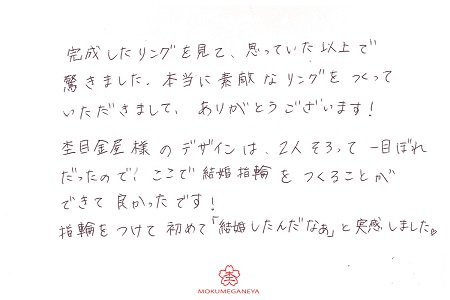 完成したリングを見て、思っていた以上で
驚きました。本当に素敵なリングをつくって
いただきまして、ありがとうございます!
杢目金屋様のデザインは、2人そろって一目ぼれ
だったので、ここで結婚指輪をつくることが
できて良かったです!
指輪をつけて初めて「結婚したんだなぁ」と実感しました。
MOKUMEGANEYA